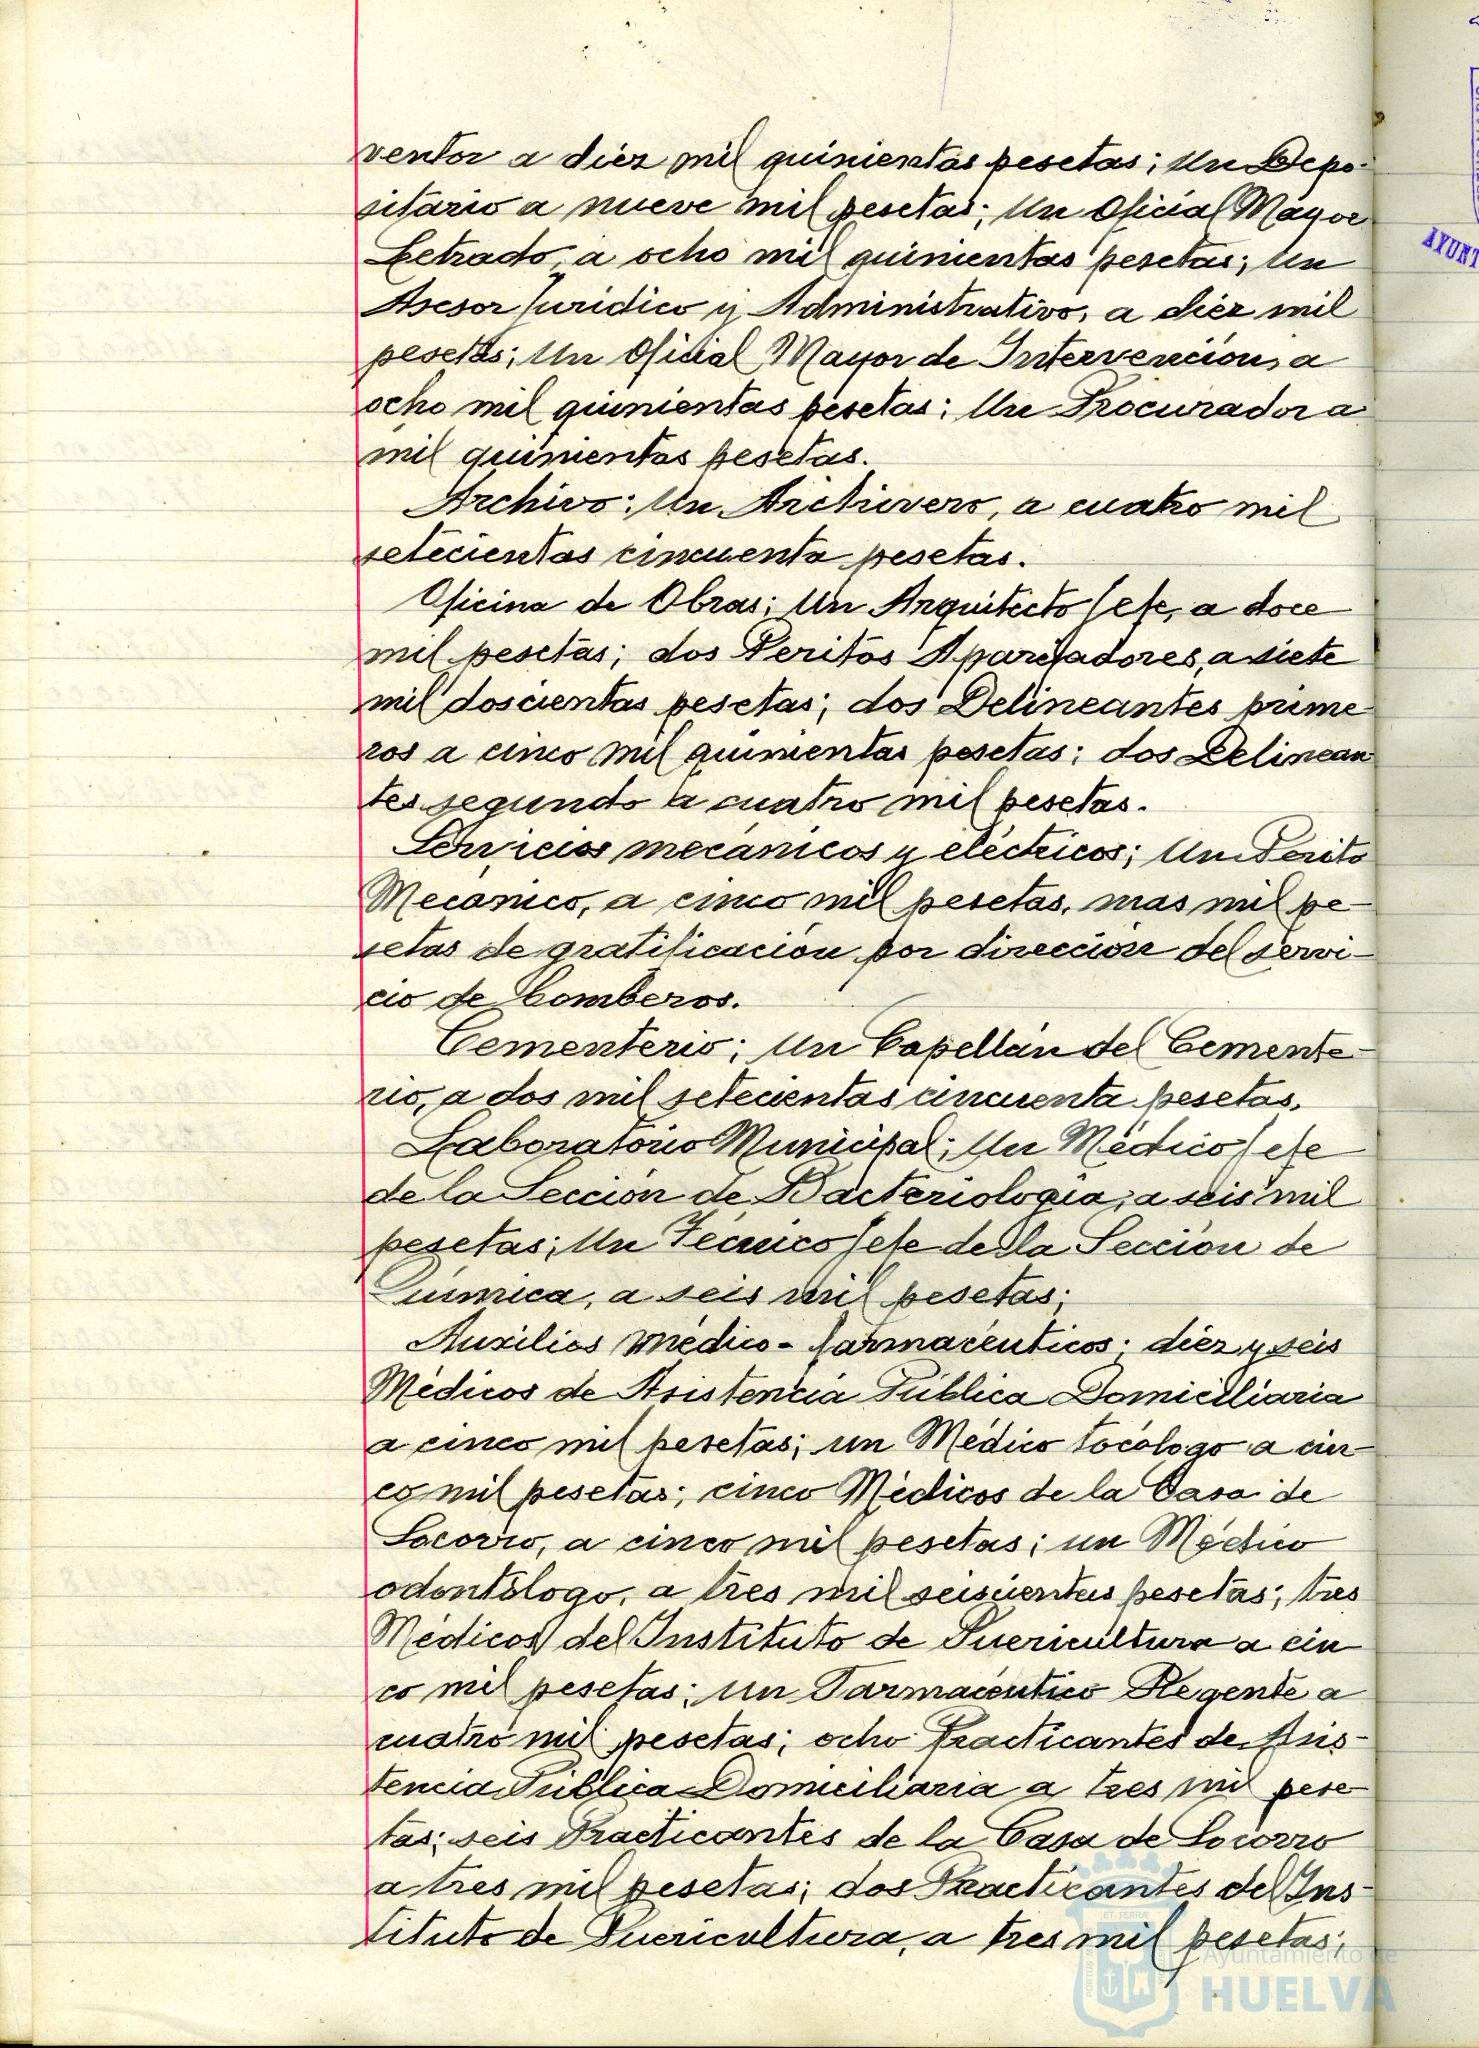 ventor a diéz mil quinientas pesetas; Un Depo-
sitario a nueve mil pesetas; Un Oficial Mayor
Letrado, a ocho mil quinientas pesetas; Un
Asesor Jurídico y Administrativo, a diéz mil
pesetas; Un Oficial Mayor de Intervención, a
ocho mil quinientas pesetas; Un Procurador a
mil quinientas pesetas.
Archivo: Un Archivero, a cuatro mil
setecientas cincuenta pesetas.
Oficina de Obras; Un Arquitecto Jefe, a doce
mil pesetas; dos Peritos Aparejadores, a siete
mil doscientas pesetas; dos Delineantes prime-
ros a cinco mil quinientas pesetas; dos Delinean
tes segundo a cuatro mil pesetas.
Servicios mecánicos y eléctricos; Un Perito
Mecánico, a cinco mil pesetas, mas mil pe-
setas de gratificación por dirección del servi-
cio de bomberos.
Cementerio; Un Capellán del Cemente-
rio, a dos mil setecientas cincuenta pesetas.
Laboratorio Municipal; Un Médico Jefe
de la Sección de Bacteriología, a seis mil
pesetas; Un Técnico Jefe de la Sección de
Química, a seis mil pesetas;
Auxilios médico-farmacéuticos; diéz y seis
Médicos de Asistencia Pública Domiciliaria
a cinco mil pesetas; un Médico tocólogo a cin-
co mil pesetas; cinco Médicos de la Casa de
Socorro, a cinco mil pesetas; un Médico
odontólogo, a tres mil seiscientas pesetas; tres
Médicos del Instituto de Puericultura a cin
co mil pesetas; un Farmacéutico Regente a
cuatro mil pesetas; ocho Practicantes de Asis-
tencia Pública Domiciliaria a tres mil pese-
tas; seis Practicantes de la Casa de Socorro
a tres mil pesetas; dos Practicantes del Ins-
tituto de Puericultura, a tres mil pesetas;
Ayuntamiento de
HUELVA
AYUNT